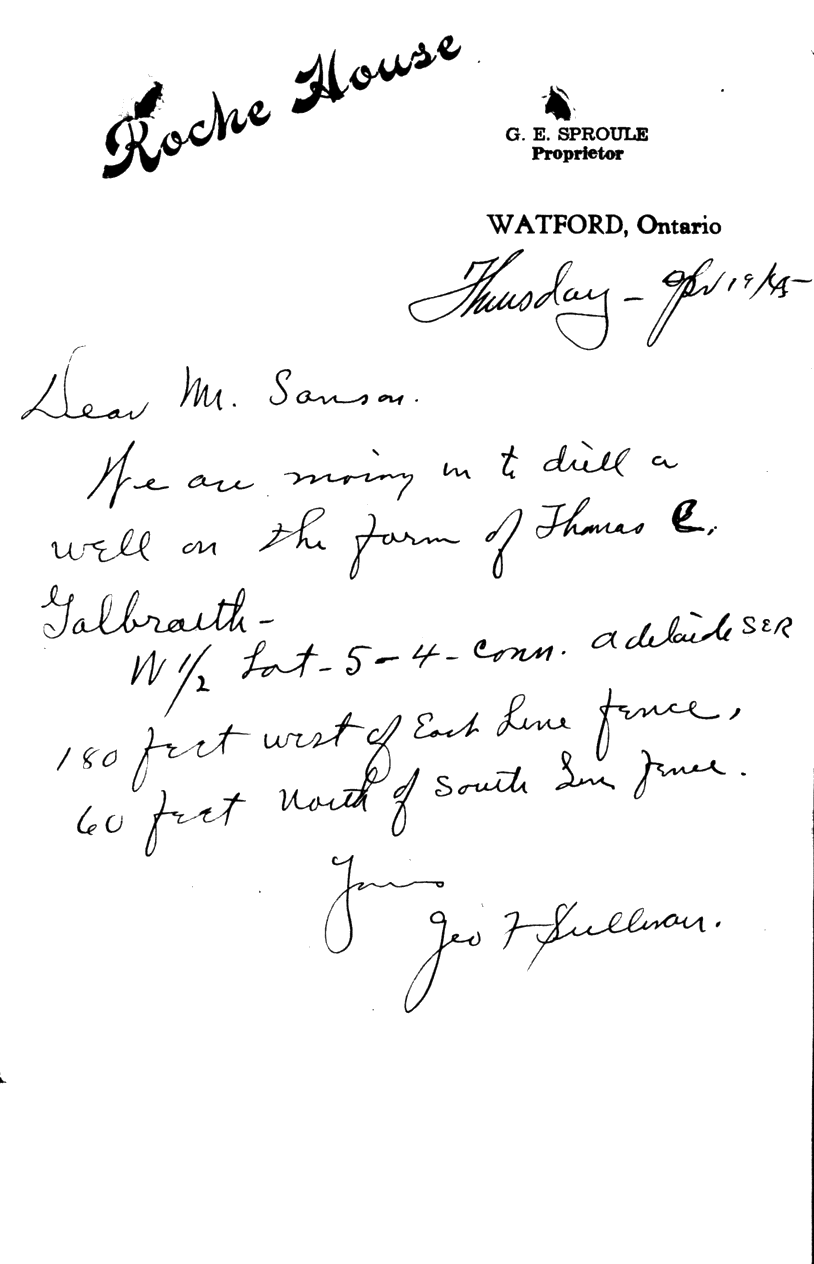 Roche House
G. E. SPROULE
Proprietor
WATFORD, Ontario
Thursday - Apr 19/45-
Dear Mr. Sanson.
We are moving in to drill a
well on the farm of Thomas C.
Galbraith-
W 1/2 Lot-5-4-Conn. Adelaide SER
180 feet west of East Line fence,
60 feet North of South Line fence.
Yours
Geo F Sullivan.